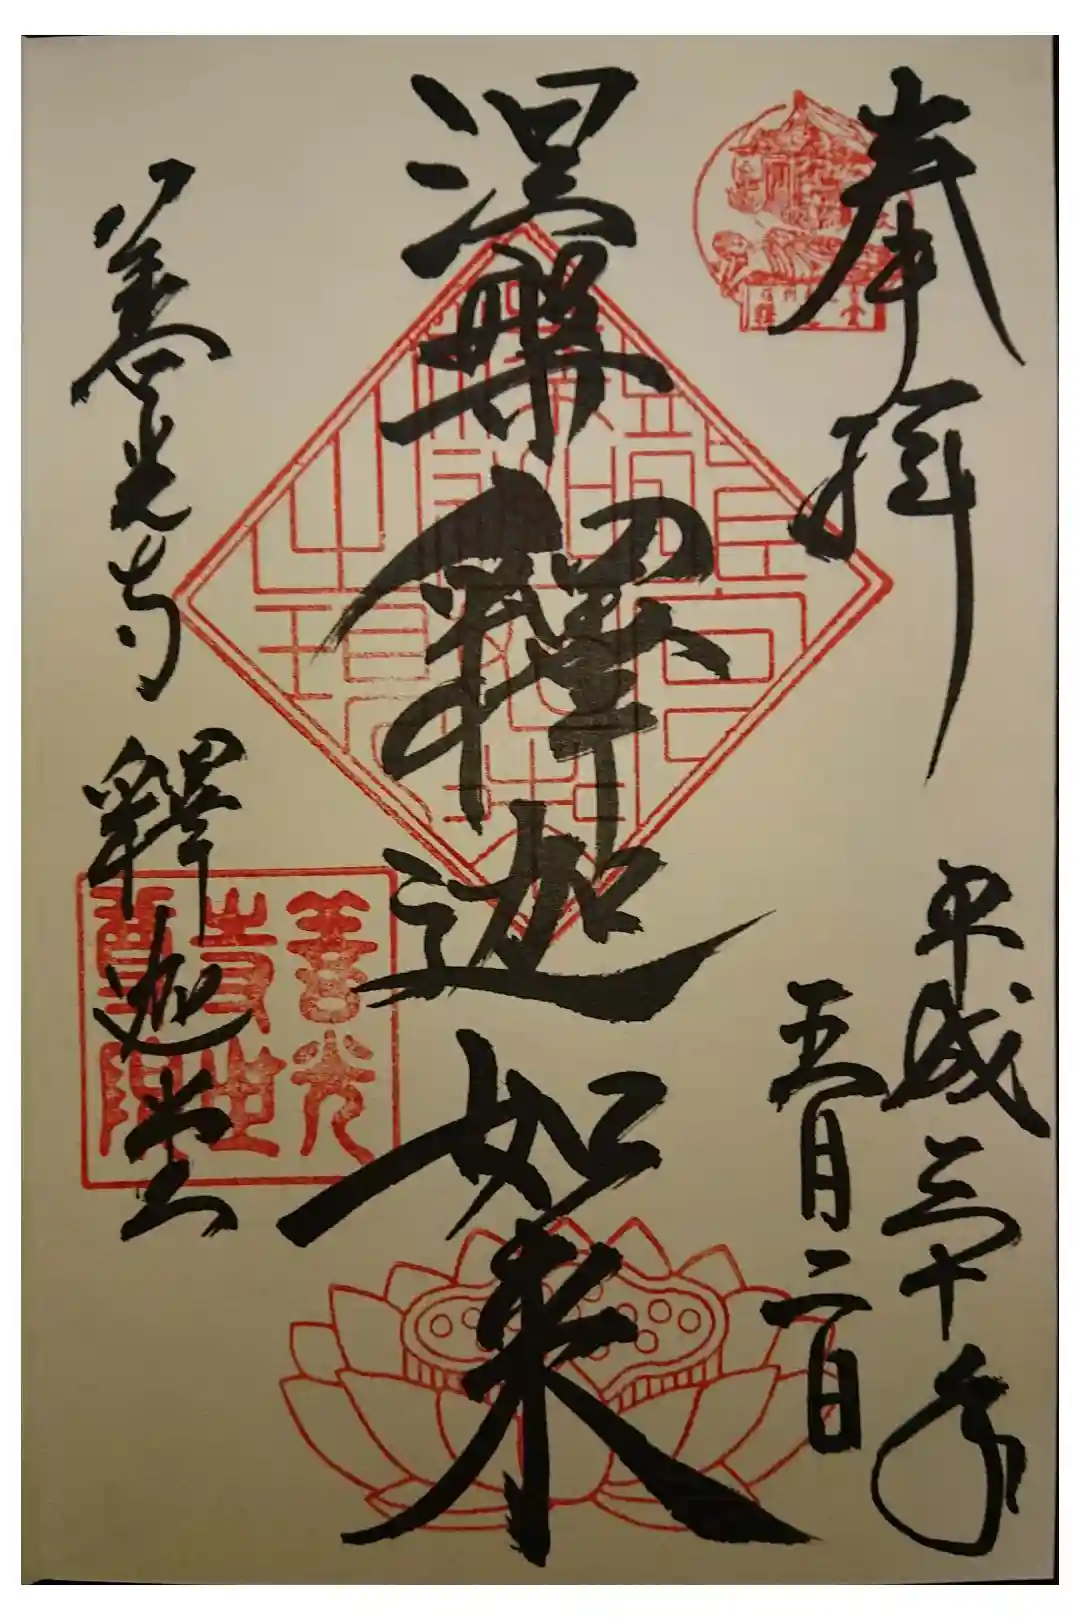 奉拝
平成三十年
五月二日
涅槃釋迦如来
善光寺釋迦堂
善光
寺世
尊院